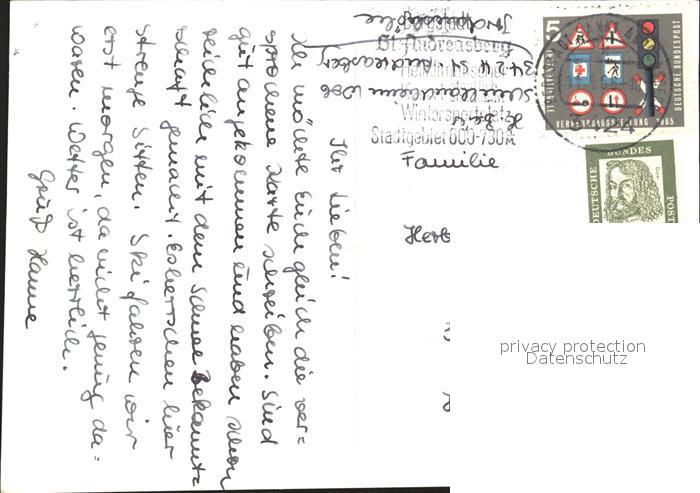 Ihr Lieben!
Ich möchte Euch gleich die ver=
sprochene Karte schreiben. Sind
gut angekommen und haben schon
reichlich mit dem Schnee Bekannt=
schaft gemacht. Es herrschen hier
strenge Sitten. Ski fahren wir
erst morgen, da nicht genug da=
waren. Wetter ist herrlich.
Gruß Hanne
Schullandheim
3424 St. Andreasberg
St. Andreasberg
Wintersportplatz
Stadtgebiet 600-750 M
Familie
Herb
5
DEUTSCHE BUNDESPOST
VERKEHRSAUSSTELLUNG 1965
DEUTSCHE
BUNDES
POST
privacy protection
Datenschutz